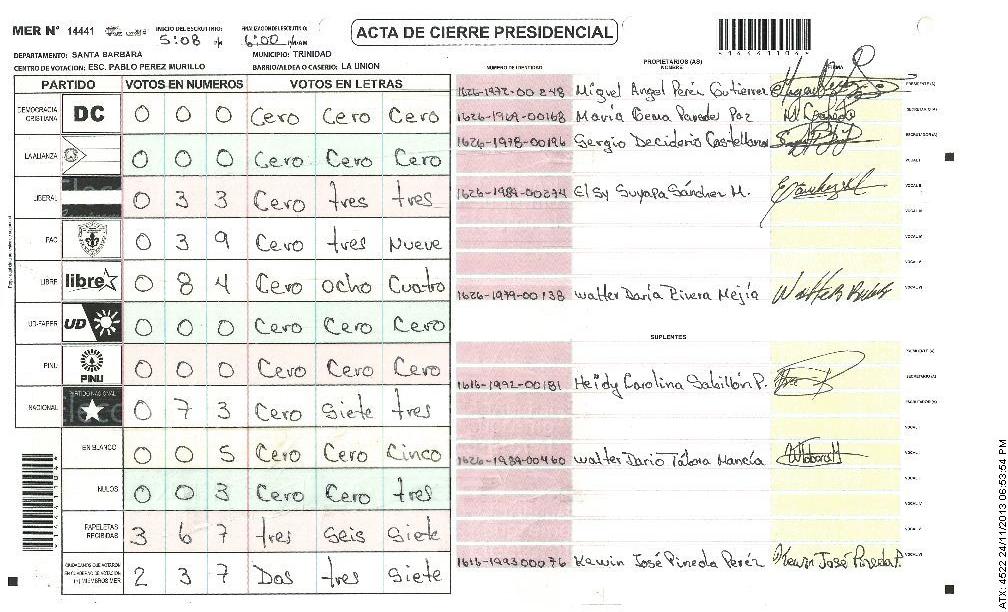 MER N° 14441 INICIO DEL ESCRUTINIO: 5:08 FINALIZACION DEL ESCRUTINIO: 6:00 ACTA DE CIERRE PRESIDENCIAL
DEPARTAMENTO: SANTA BARBARA MUNICIPIO: TRINIDAD
CENTRO DE VOTACION: ESC. PABLO PEREZ MURILLO BARRIO/ALDEA O CASERIO: LA UNION
PARTIDO VOTOS EN NUMEROS VOTOS EN LETRAS
DEMOCRACIA CRISTIANA DC 0 0 0 Cero Cero Cero
LA ALIANZA 0 0 0 Cero Cero Cero
LIBERAL 0 3 3 Cero tres tres
PAC 0 3 9 Cero tres Nueve
LIBRE libre 0 8 4 Cero ocho Cuatro
UD-FAPER UD 0 0 0 Cero Cero Cero
PINU PINU 0 0 0 Cero Cero Cero
NACIONAL PARTIDO NACIONAL 0 7 3 Cero Siete tres
EN BLANCO 0 0 5 Cero Cero Cinco
NULOS 0 0 3 Cero Cero tres
PAPELETAS RECIBIDAS 3 6 7 tres seis Siete
CIUDADANOS QUE VOTARON EN CUADERNO DE VOTACION (+) MIEMBROS MER 2 3 7 Dos tres Siete
PROPIETARIOS (AS)
NUMERO DE IDENTIDAD NOMBRE FIRMA
1626-1972-00248 Miguel Angel Perez Gutierrez PRESIDENTE(A)
1626-1969-00168 Maria Gema Paredes Paz SECRETARIO(A)
1626-1978-00196 Sergio Deciderio Castellano ESCRUTADOR(A)
VOCAL I
1626-1984-00274 Elsy Suyapa Sánchez M. VOCAL II
VOCAL III
VOCAL IV
VOCAL V
1626-1979-00138 Walter Daría Rivera Mejía
SUPLENTES
PRESIDENTE (A)
1616-1992-00181 Heidy Carolina Sabillón P. SECRETARIO(A)
ESCRUTADOR(A)
VOCAL I
1626-1989-00460 Walter Dario Tábora Mancía
VOCAL IV
VOCAL V
1616-1993 00076 Kewin José Pineda Peréz Kewin José Pineda P. VOCAL VI
ATX: 4522 24/11/2013 06:53:54 PM